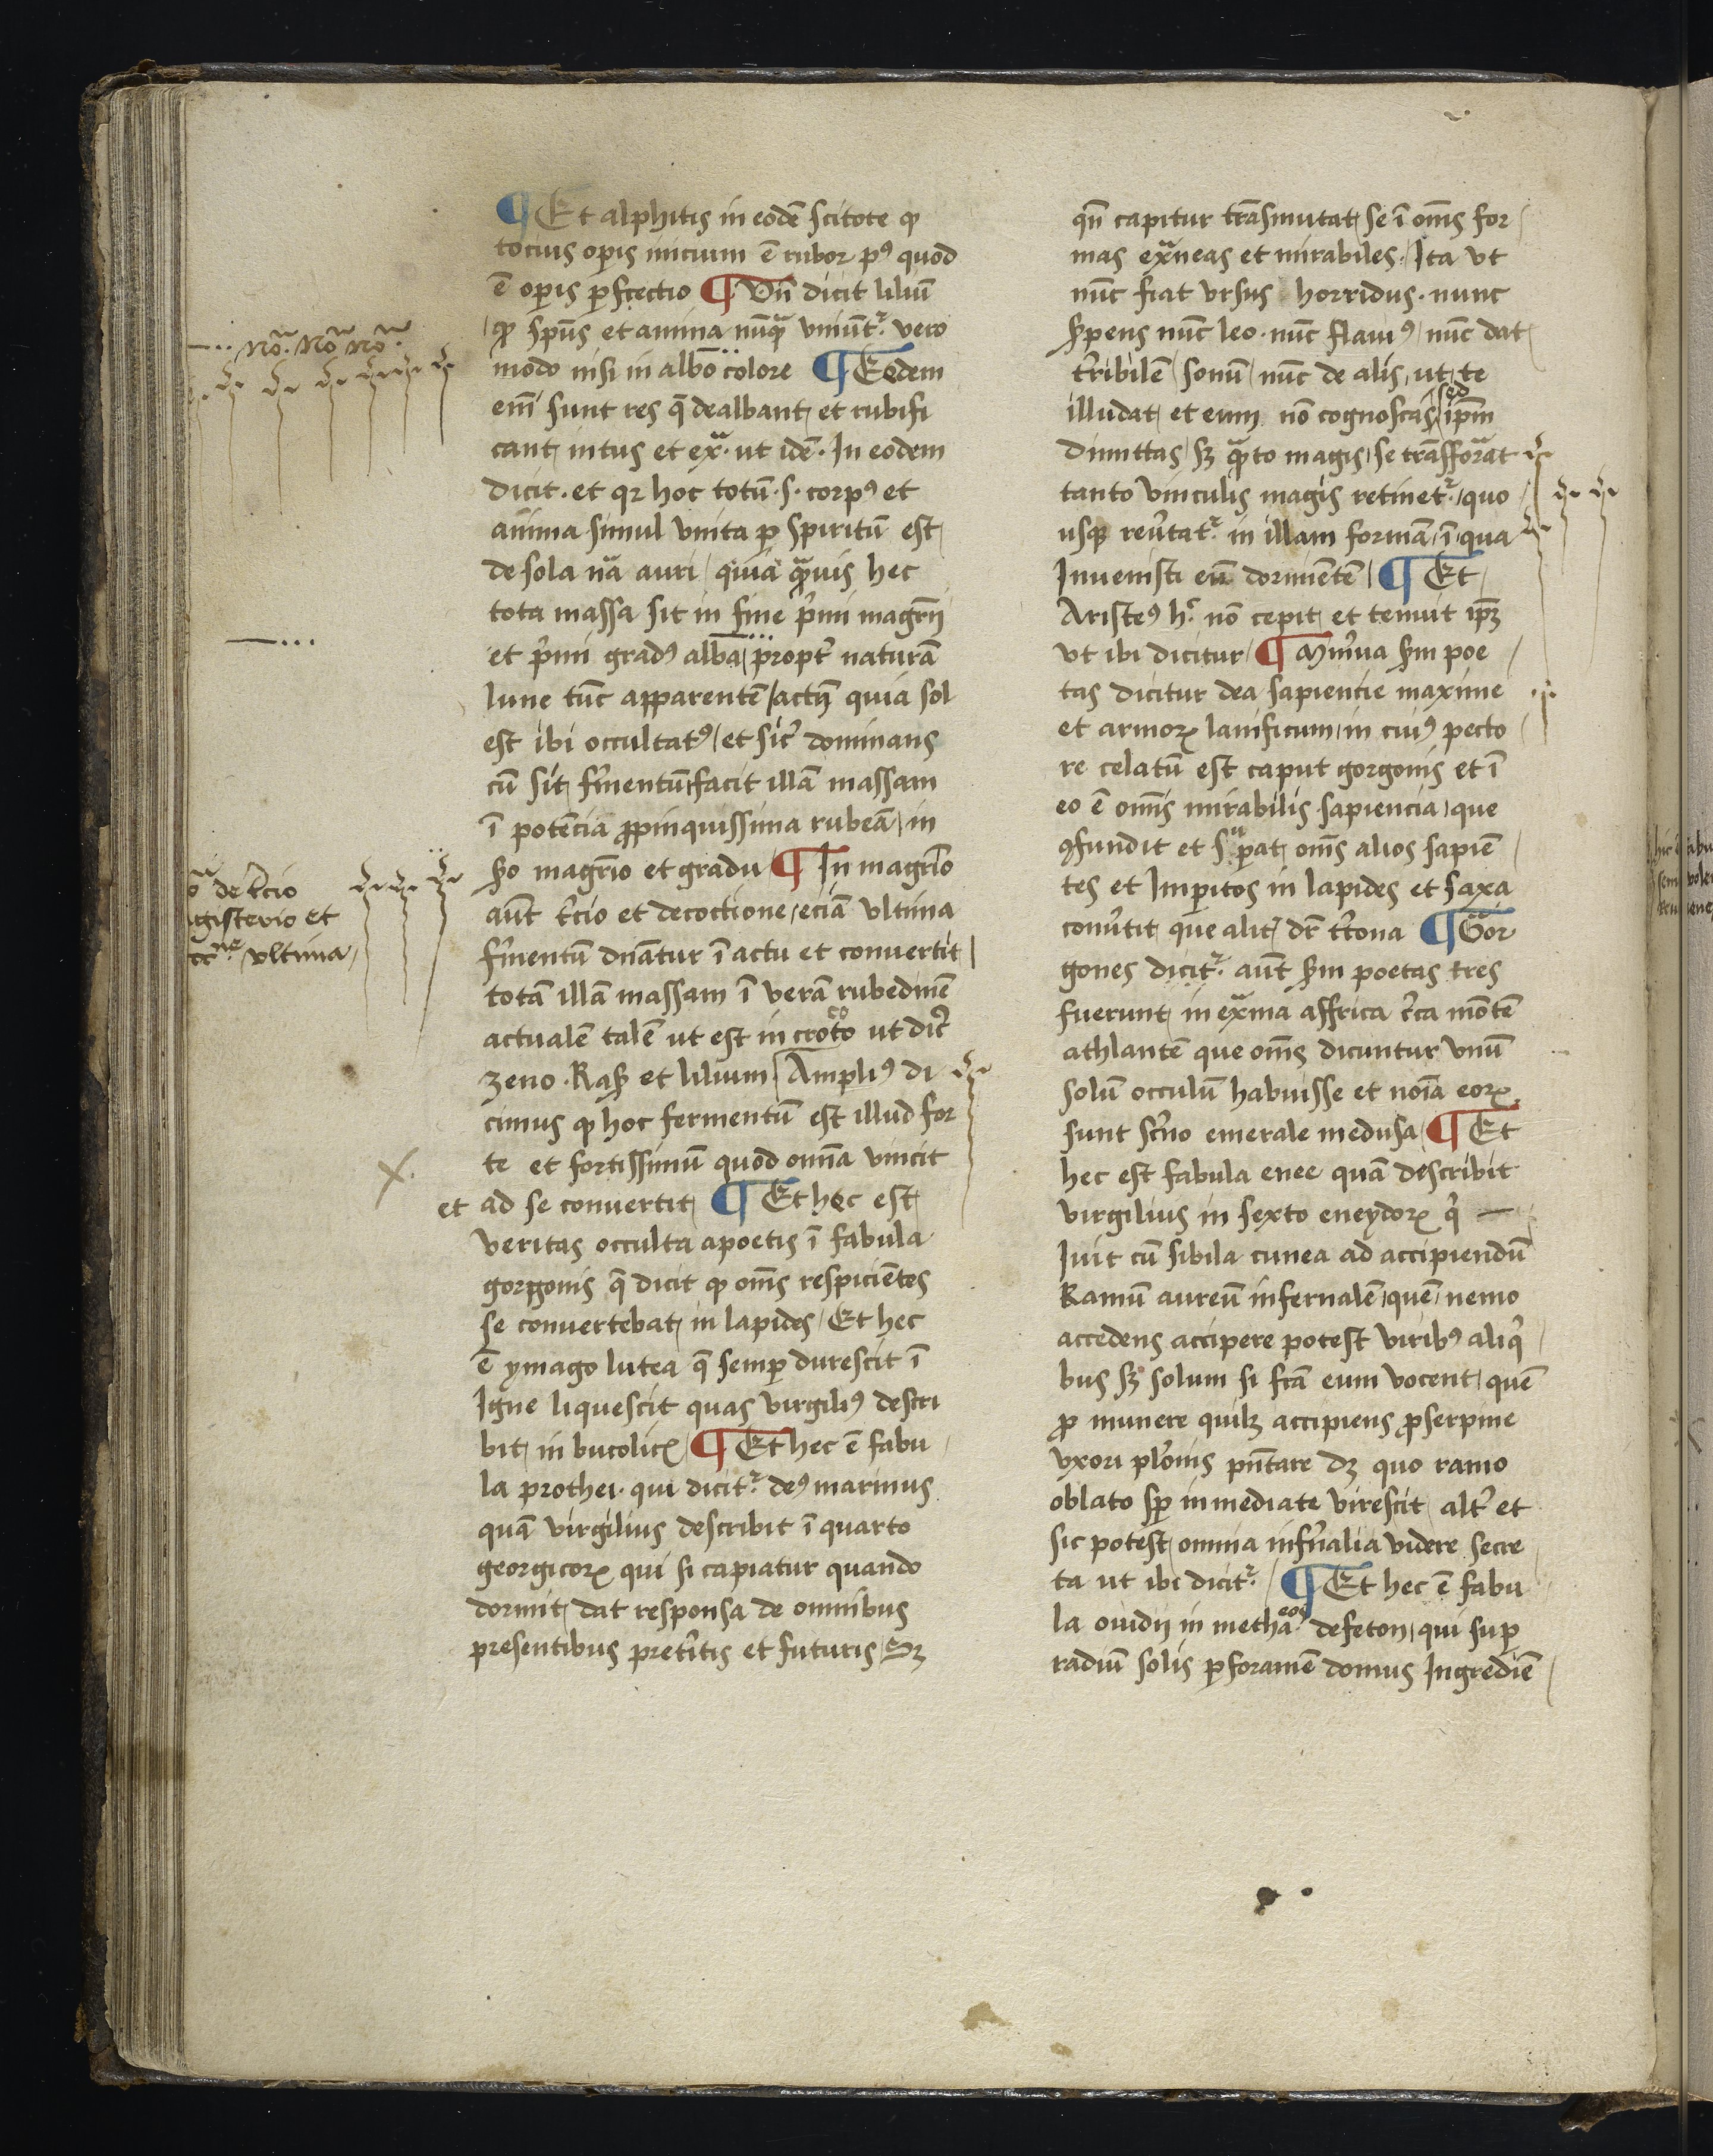 ¶ Et alphitis in eodē scitote ꝙ
tocius opis inicium ē rubor pꝰ quod
ē opis ꝑfectio ¶ Vñ dicit liliū
ꝙ spūs et anima nūqᷓ vniūtᷣ vero
modo nisi in albō colore ¶ Eodem
em̄ sunt res q̄ dealbant et rubifi
cant intus et exᷓ ut idē · In eodem
dicit · et qꝛ hoc totū · s · corpꝰ et
anima simul vnita ꝑ spiritū est
de sola nā auri / quia qᷓuis hec
tota massa sit in fine pͥmi magr̄ij
et pͥmi gradꝰ alba / propt̉ naturā
lune tūc apparentē / act̄ quia sol
est ibi occultatꝰ / et sic̉ dominans
cū sit f̉mentū facit illā massam
ī potēcia ꝓpinquissima rubeā / in
ẜo magr̄io et gradu / ¶ In magr̄io
aūt t̉cio et decoctione / eciā vltima
f̉mentū dn̄atur ī actu et convertit
totā illā massam ī verā rubedinē
actualē talē ut est in croco ut dic̉
zeno · Rasꝭ et lilium / Ampliꝰ di
cimus ꝙ hoc fermentū est illud for
te et fortissimū quod omīa vincit
et ad se convertit ¶ Et hec est
veritas occulta a poetis ī fabula
gorgonis q̄ dicit ꝙ om̄s respiciētes
se convertebat in lapides / Et hec
ē ymago lutea q̄ semꝑ durescit ī
Igne liquescit quas virgiliꝰ descri
bit in bucolicꝭ / ¶ Et hec ē fabu
la prothei · qui dicitᷣ deꝰ marinus
quā virgilius describit ī quarto
georgicoꝝ qui si capiatur quando
dormit dat responsa de omnibus
presentibus pret̉itis et futuris / Sꝫ
qn̄ capitur trāsmutat se ī om̄s for
mas exᷓneas et mirabiles / Ita vt
nūc fiat vrsus horridus · nunc
ẜpens nūc leo · nūc fluuiꝰ / nūc dat
t̉ribilē / sonū / nūc de alis / ut te
illudat et eum nō cognoscas / sed ip̄m
dimittas / sꝫ qᷓto magis / se trāsforat
tanto vinculis magis retinetᷣ / quo
usqꝫ reủtatᷣ in illam formā / ī qua
Inuenisti eū dormiētē / ¶ Et
Aristeꝰ hͨ nō cepit et tenuit ip̄ꝫ
vt ibi dicitur / ¶ Min̉ua ẜm poe
tas dicitur dea sapiencie maxime
et armoꝝ lanificum / in cuiꝰ pecto
re celatū est caput gorgonis et ī
eo ē om̄is mirabilis sapiencia / que
ꝯfundit et sᷓꝑat om̄s alios sapiē
tes et Imꝑitos in lapides et saxa
conủtit que alit̉ dr̄ t̉tona ¶ Gor
gones dicitᷣ aūt ẜm poetas tres
fuerunt in exᷓma affrica c̉ca mōtē
athlantē que om̄s dicuntur vnū
solū occulū habuisse et noīa eoꝝ
sunt sc̉no emerale medusa / ¶ Et
hec est fabula enee quā describit
virgilius in sexto eneydoꝝ qͥ —
Iuit cū sibila cunea ad accipiendū
Ramū aureū infernalē / quē nemo
accedens accipere potest viribꝰ aliqͥ
bus sꝫ solum si fcā eum vocent / quē
ꝓ munere quilꝫ accipiens ꝓserpine
vxori plōnis pn̄tare dꝫ quo ramo
oblato sꝑ inmediate virescit / alt̉ et
sic potest omnia inf̉nalia videre secre
ta ut ibi dicitᷣ / ¶ Et hec ē fabu
la ouidij in metha eos de feton / qui suꝑ
radiū solis ꝑ foramē domus Ingrediē
Noᷓ Noᷓ Noᷓ
de t̉cio
gisterio et
vltima